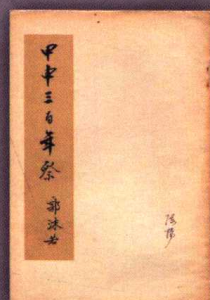 甲申三百年祭
郭沫若